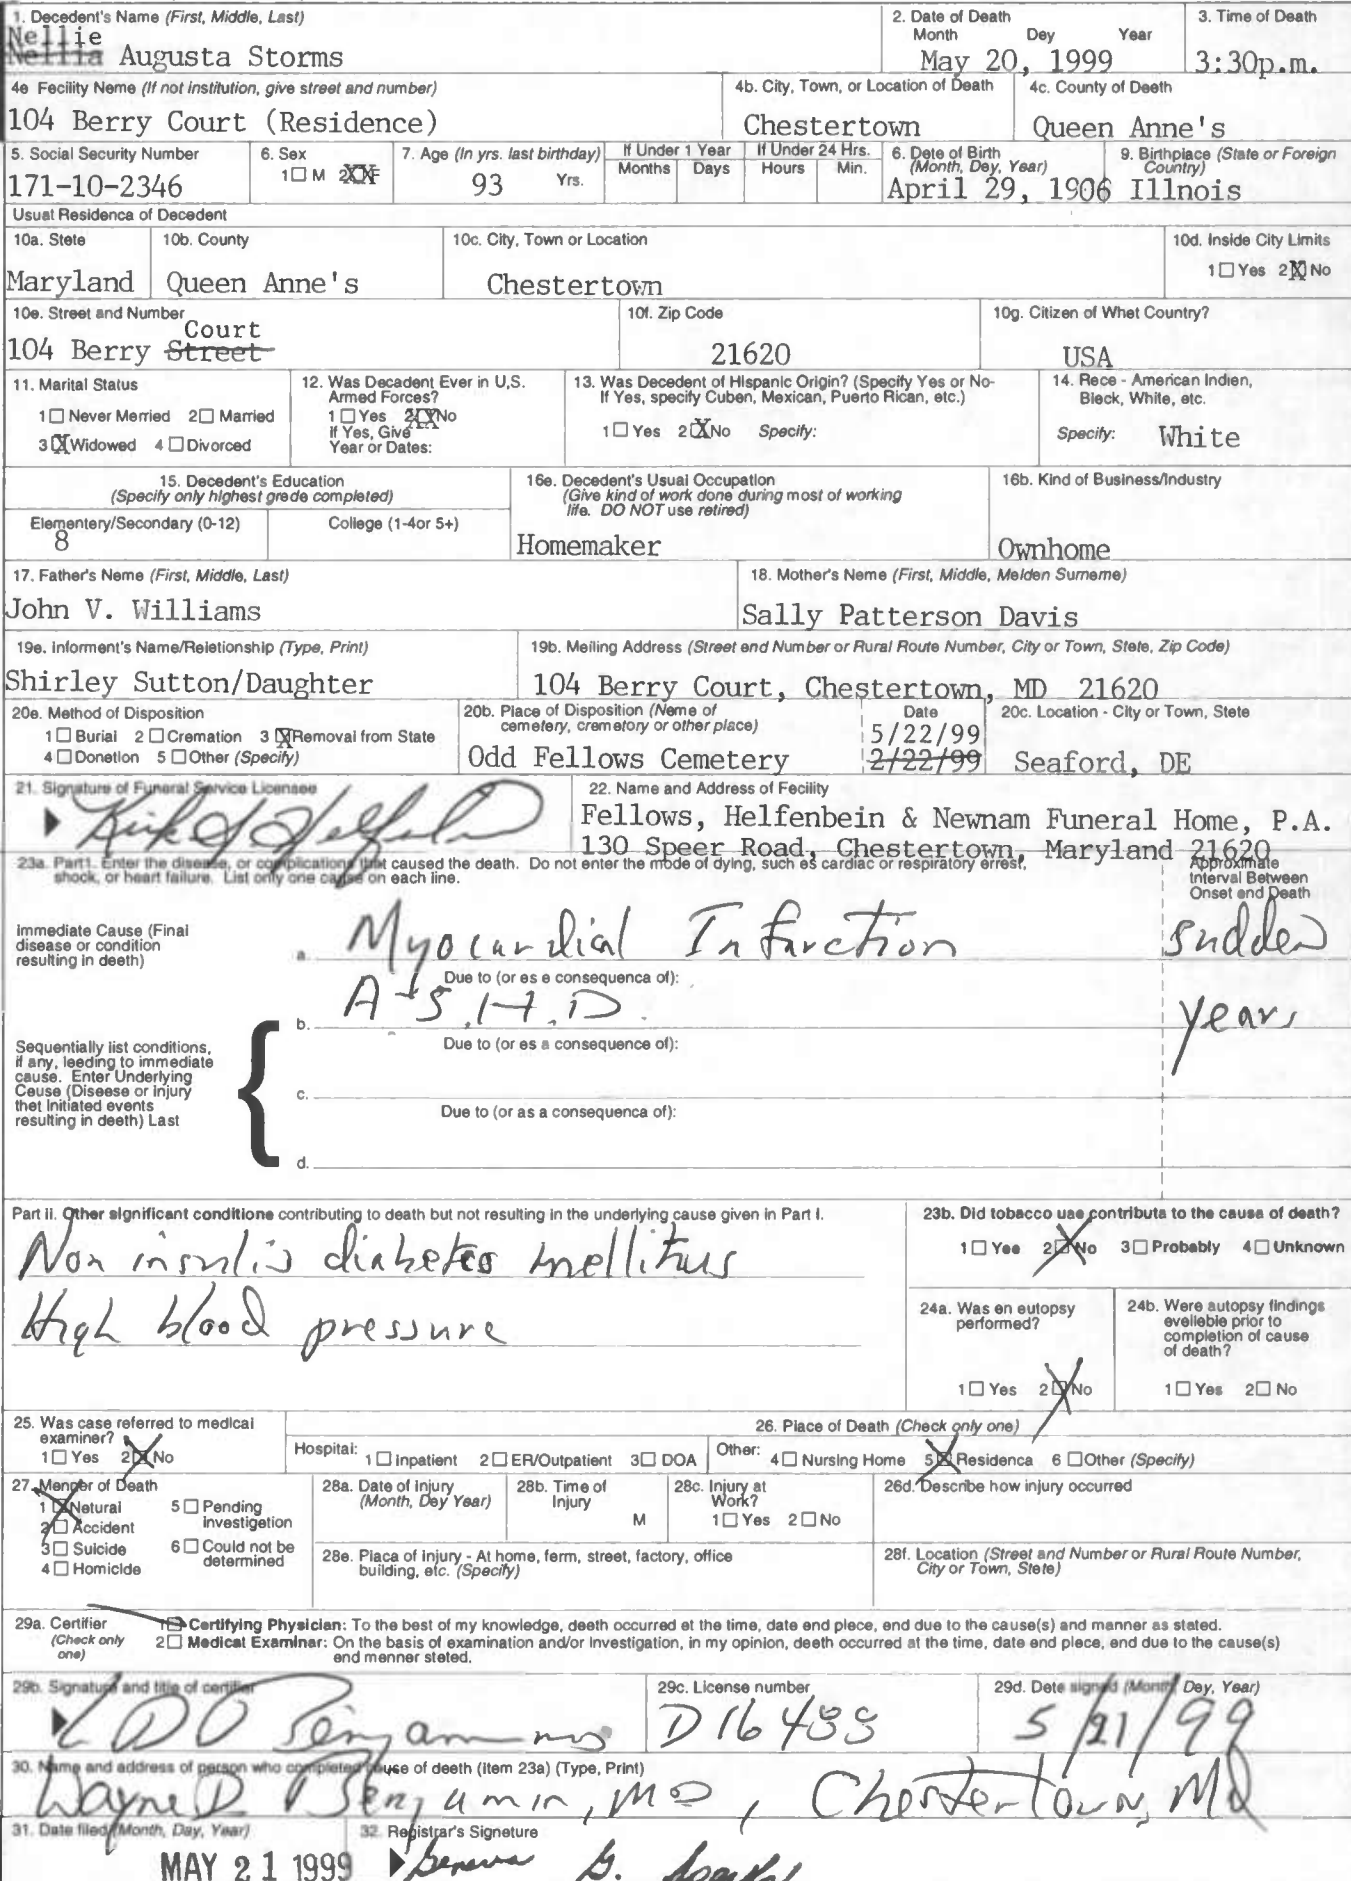 1. Decedent's Name (First, Middle, Last)
Nellie
Nellia Augusta Storms
2. Date of Death
Month Dey Year
May 20, 1999
3. Time of Death
3:30p.m.
4e Fecility Name (If not institution, give street and number)
104 Berry Court (Residence)
4b. City, Town, or Location of Death
Chestertown
4c. County of Deeth
Queen Anne's
5. Social Security Number
171-10-2346
6. Sex
1☐ M 2XXF
7. Age (In yrs. last birthday)
93 Yrs.
If Under 1 Year
Months Days
If Under 24 Hrs.
Hours Min.
6. Dete of Birth
(Month, Dey, Year)
April 29, 1906
9. Birthplace (State or Foreign
Country)
Illnois
Usual Residenca of Decedent
10a. Stete
Maryland
10b. County
Queen Anne's
10c. City, Town or Location
Chestertown
10d. Inside City Limits
1☐Yes 2☒No
10e. Street and Number
Court
104 Berry Street
10f. Zip Code
21620
10g. Citizen of Whet Country?
USA
11. Marital Status
1☐ Never Merried 2☐ Married
3☒Widowed 4☐Divorced
12. Was Decadent Ever in U.S.
Armed Forces?
1☐Yes 2☒No
If Yes, Give
Year or Dates:
13. Was Decedent of Hispanic Origin? (Specify Yes or No-
If Yes, specify Cuben, Mexican, Puerto Rican, etc.)
1☐Yes 2☒No Specify:
14. Rece - American Indien,
Bleck, White, etc.
Specify: White
15. Decedent's Education
(Specify only highest grede completed)
Elementery/Secondary (0-12)
8
College (1-4or 5+)
16e. Decedent's Usual Occupation
(Give kind of work done during most of working
life. DO NOT use retired)
Homemaker
16b. Kind of Business/Industry
Ownhome
17. Father's Name (First, Middle, Last)
John V. Williams
18. Mother's Neme (First, Middle, Melden Surneme)
Sally Patterson Davis
19e. Informent's Name/Reletionship (Type, Print)
Shirley Sutton/Daughter
19b. Meiling Address (Street end Number or Rural Route Number, City or Town, Stete, Zip Code)
104 Berry Court, Chestertown, MD 21620
20e. Method of Disposition
1☐ Burial 2☐Cremation 3☒Removal from State
4☐Donetlon 5☐Other (Specify)
20b. Place of Disposition (Neme of
cemetery, cremetory or other place)
Odd Fellows Cemetery
Date
5/22/99
2/22/99
20c. Location - City or Town, State
Seaford, DE
21. Signature of Funeral Service Licensee
22. Name and Address of Fecility
Fellows, Helfenbein & Newnam Funeral Home, P.A.
130 Speer Road, Chestertown, Maryland 21620
23a. Part1. Enter the disease, or complications that caused the death. Do not enter the mode of dying, such es cardiac or respiratory errest,
shock, or heart failure. List only one cause on each line.
Approximate
Interval Between
Onset end Death
Immediate Cause (Final
disease or condition
resulting in death)
a. Myocardial Infarction
sudden
Due to (or es e consequence of):
b. A.S.H.D.
years
Due to (or es a consequence of):
Sequentially list conditions,
if any, leeding to immediate
cause. Enter Underlying
Ceuse (Diseese or injury
thet Initiated events
resulting in deeth) Last
c.
Due to (or as a consequence of):
d.
Part ii. Other significant conditione contributing to death but not resulting in the underlying cause given in Part I.
Non insulin diabetes mellitus
High blood pressure
23b. Did tobacco uae contributa to the causa of death?
1☐Yee 2☒No 3☐Probably 4☐Unknown
24a. Was en eutopsy
performed?
1☐ Yes 2☒No
24b. Were autopsy findings
eveileble prior to
completion of cause
of death?
1☐Yes 2☐ No
25. Was case referred to medical
examiner?
1☐Yes 2☒No
26. Place of Death (Check only one)
Hospital: 1☐Inpatient 2☐ER/Outpatient 3☐ DOA
Other: 4☐Nursing Home 5☒Residenca 6☐Other (Specify)
27. Menner of Death
1☒Netural
2☐Accident
3☐ Suicide
4☐ Homicide
5☐Pending
investigetion
6☐Could not be
determined
28a. Date of injury
(Month, Dey Year)
28b. Time of
Injury
M
28c. Injury at
Work?
1☐Yes 2☐No
26d. Describe how injury occurred
28e. Placa of injury - At home, ferm, street, factory, office
building, etc. (Specify)
28f. Location (Street and Number or Rural Route Number,
City or Town, Stete)
29a. Certifier
(Check only
one)
1☒Certifying Physician: To the best of my knowledge, deeth occurred et the time, date end plece, end due to the cause(s) and manner as stated.
2☐ Medical Examinar: On the basis of examination and/or Investigation, in my opinion, deeth occurred at the time, date end plece, end due to the cause(s)
end menner steted.
29b. Signature and title of certifier
29c. License number
D16488
29d. Dete signed (Month, Dey, Year)
5/21/99
30. Name and address of person who completed cause of deeth (item 23a) (Type, Print)
Wayne D Benjamin, MD, Chestertown, Md
31. Date filed (Month, Day, Year)
MAY 21 1999
32. Registrar's Signeture
Geneva G.